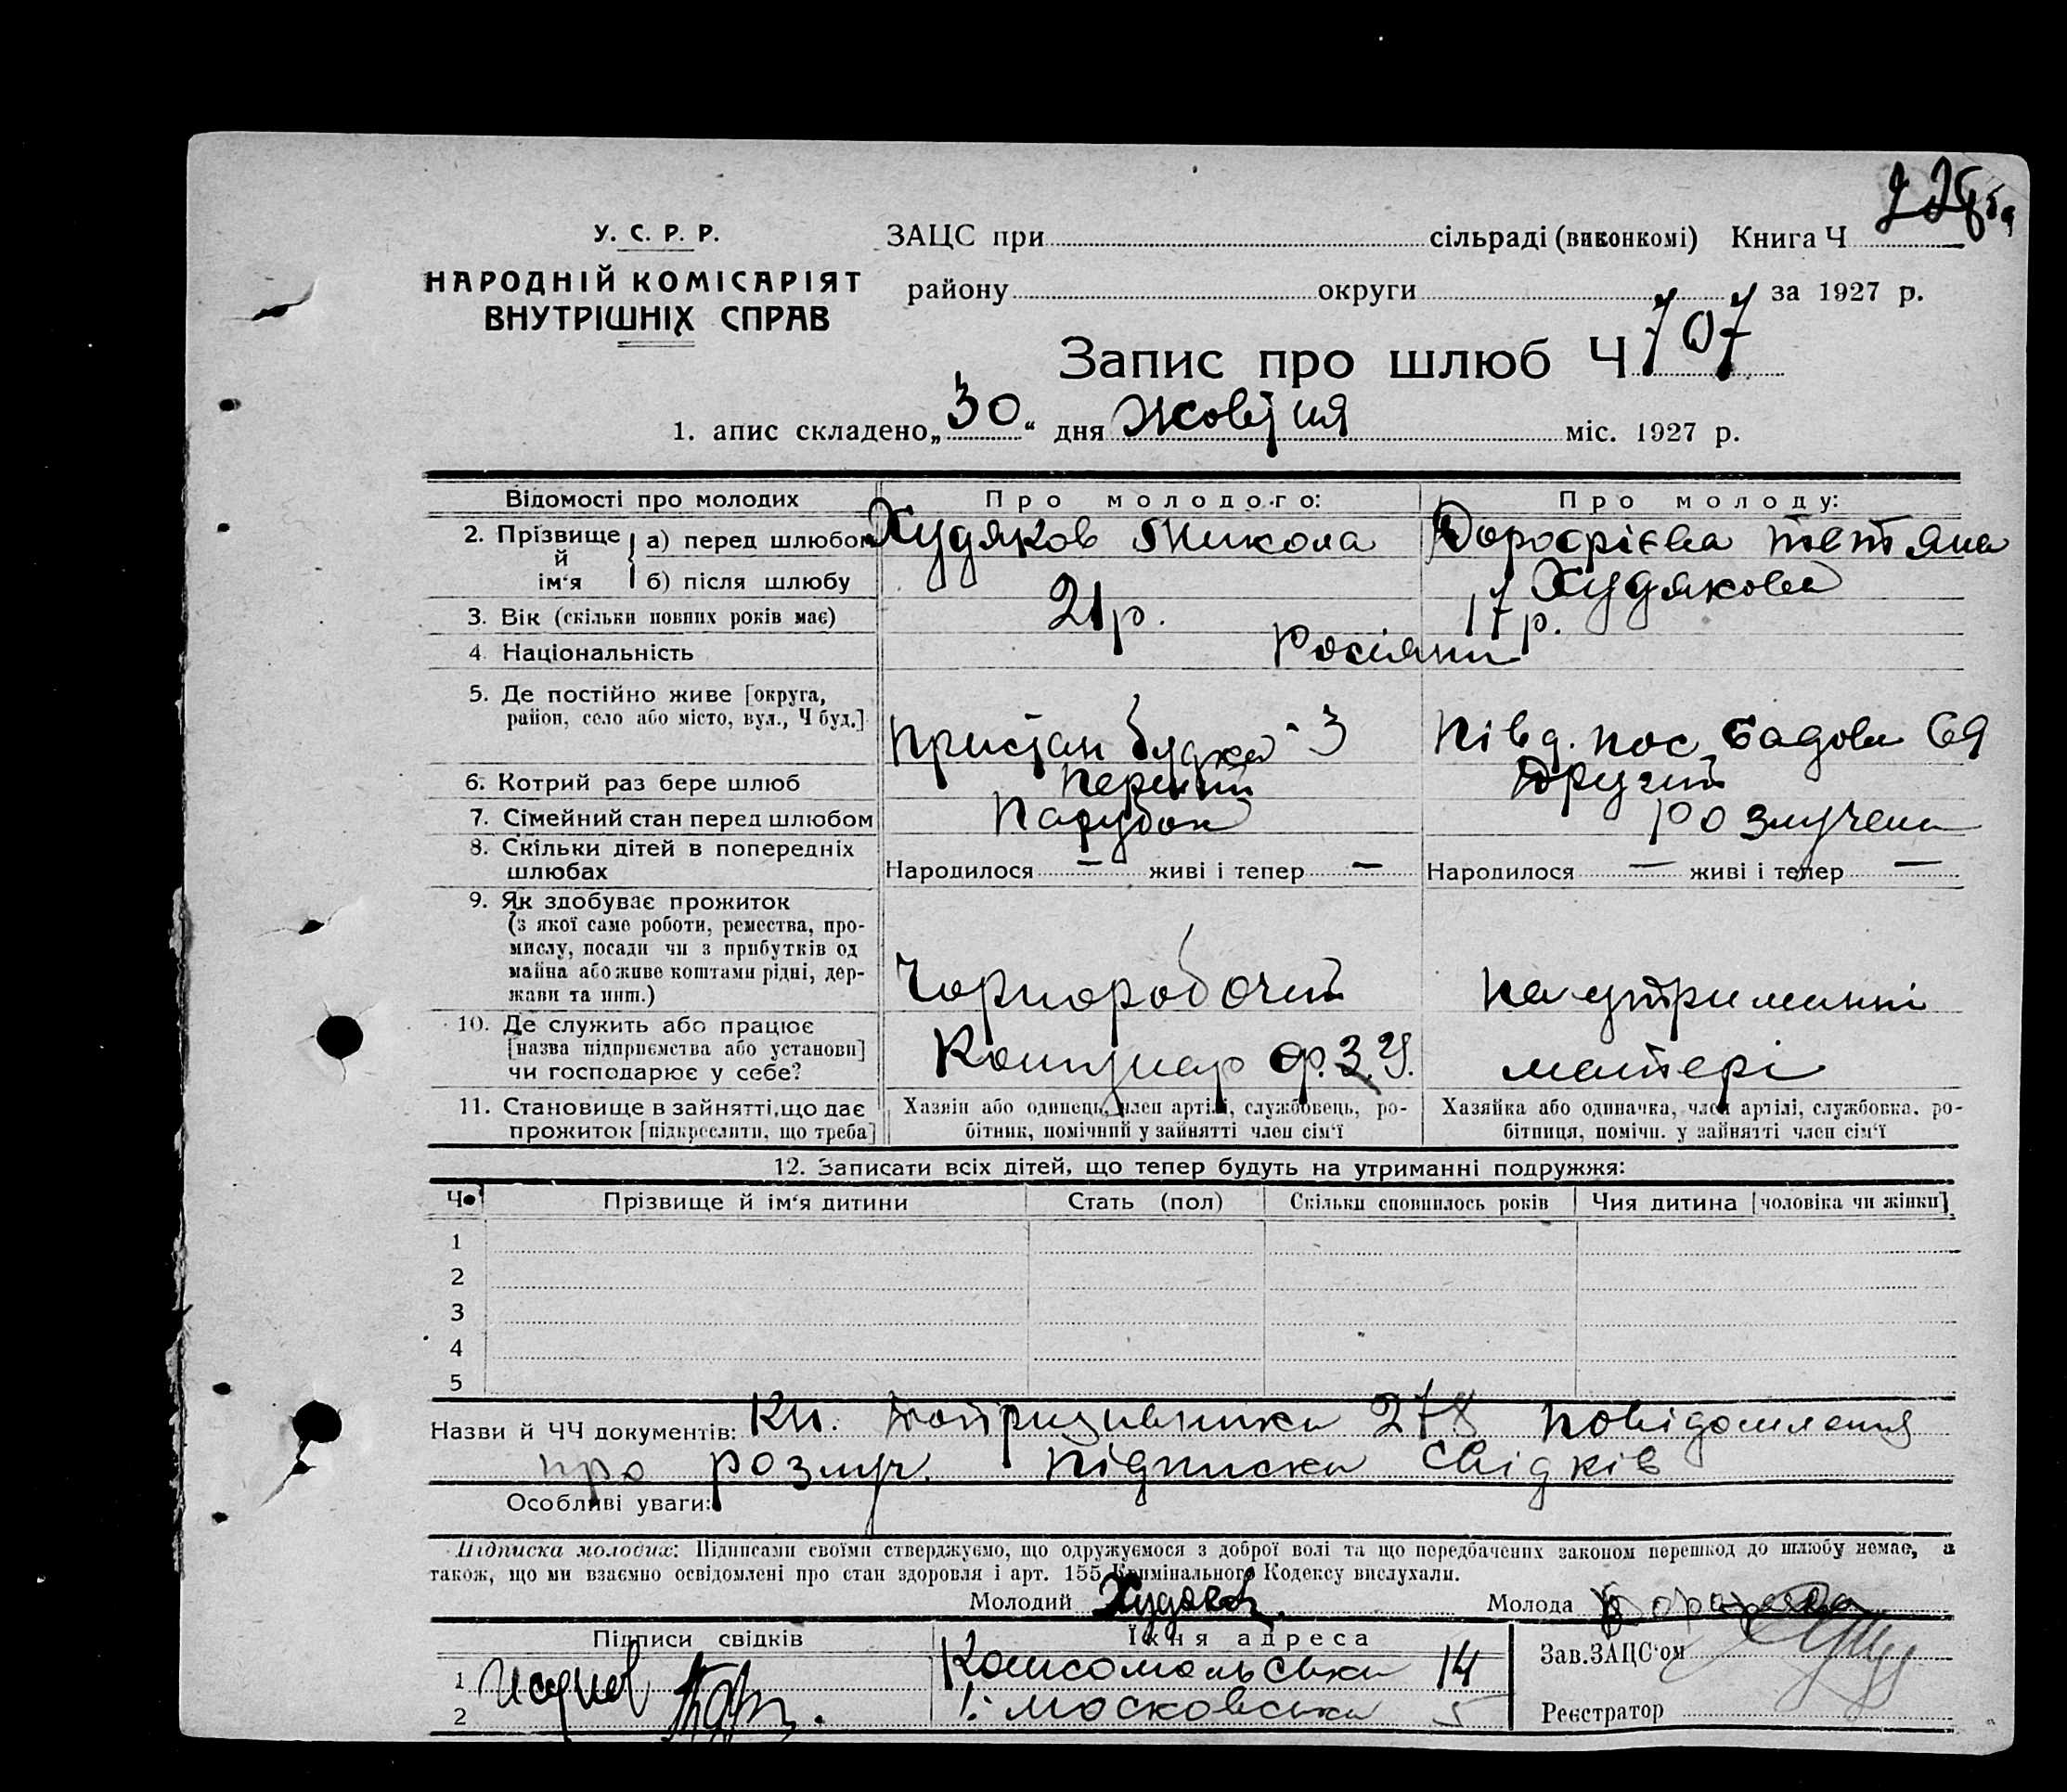 У. С. Р. Р.
НАРОДНІЙ КОМІСАРІЯТ
ВНУТРІШНІХ СПРАВ
ЗАЦС при сільраді (виконкомі) Книга Ч
району округи за 1927 р.
Запис про шлюб Ч 707
1. апис складено „30“ дня Жовтня міс. 1927 р.
Відомості про молодих Про молодого: Про молоду:
2. Прізвище й ім‘я а) перед шлюбом Худяков Микола Дорофієва Тетяна
б) після шлюбу Худякова
3. Вік (скільки повних років має) 21 р. 17 р.
4. Національність Росіяни
5. Де постійно живе [округа,
район, село або місто, вул., Ч буд.] Пристан будка - 3 Півд. пос. Садова 69
6. Котрий раз бере шлюб Перший Другий
7. Сімейний стан перед шлюбом Парубок розлучена
8. Скільки дітей в попередніх
шлюбах Народилося — живі і тепер — Народилося — живі і тепер —
9. Як здобуває прожиток
(з якої саме роботи, ремества, про-
мислу, посади чи з прибутків од
майна або живе коштами рідні, дер-
жави та инш.) Чорноробочий на утриманні
10. Де служить або працює
[назва підприємства або установи]
чи господарює у себе? Ф.З.У. матері
11. Становище в зайнятті, що дає
прожиток [підкреслити, що треба]
Хазяїн або одинець, член артіли, службовець, ро-
бітник, помічний у зайнятті член сім‘ї
Хазяйка або одиначка, член артілі, службовка. ро-
бітниця, помічн. у зайнятті член сім‘ї
12. Записати всіх дітей, що тепер будуть на утриманні подружжя:
Ч Прізвище й ім‘я дитини Стать (пол) Скільки сповнилось років Чия дитина [чоловіка чи жінки]
1
2
3
4
5
Назви й ЧЧ документів: Кн. допризивника 278 повідомлення
про розлуч. Підписка свідків
Особливі уваги:
Підписка молодих: Підписами своїми стверджуємо, що одружуємося з доброї волі та що передбачених законом перешкод до шлюбу немає, а
також, що ми взаємно освідомлені про стан здоровля і арт. 155 Кримінального Кодексу вислухали.
Молодий Худяков Молода
Підписи свідків Їхня адреса
1 Комсомольська 14
2 Московська 5
Зав. ЗАЦС‘ом
Реєстратор